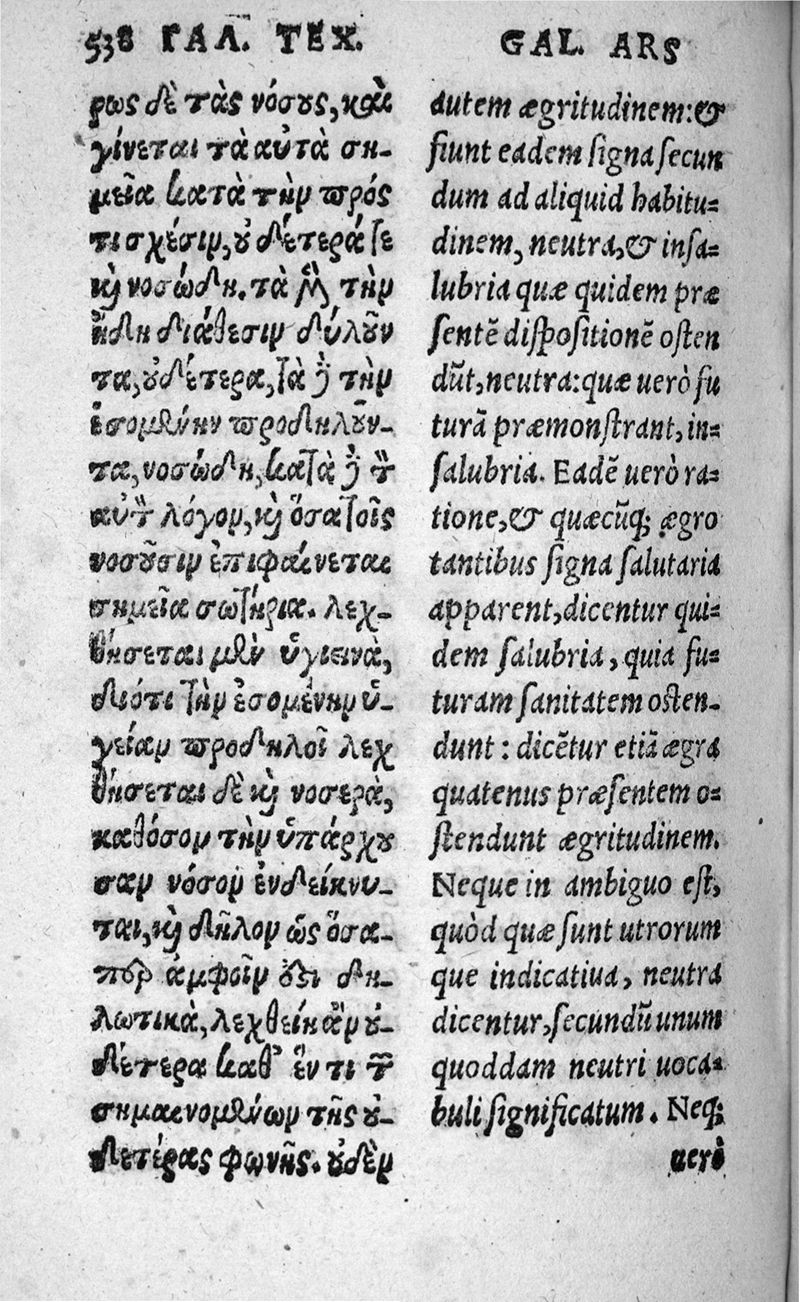 538 ΓΑΛ. ΤΕΧ.
ρως δὲ τὰς νόσους, καὶ
γίνεται τὰ αὐτὰ ση-
μεῖα κατὰ τὴν πρός
τι σχέσιν, οὐδέτερά τε
καὶ νοσώδη. τὰ μὲν τὴν
ἤδη διάθεσιν δηλοῦν
τα, οὐδέτερα, τὰ δὲ τὴν
ἐσομένην προδηλοῦν-
τα, νοσώδη, κατὰ δὲ τὸν
αὐτὸν λόγον, καὶ ὅσα τοῖς
νοσοῦσιν ἐπιφαίνεται
σημεῖα σωτήρια. λεχ-
θήσεται μὲν ὑγιεινὰ,
διότι τὴν ἐσομένην ὑ-
γείαν προδηλοῖ λεχ
θήσεται δὲ καὶ νοσερὰ,
καθόσον τὴν ὑπάρχου
σαν νόσον ἐνδείκνυ-
ται, καὶ δῆλον ὡς ὅσα-
περ ἀμφοῖν ἐστι δη-
λωτικὰ, λεχθείη ἂν οὐ-
δέτερα καθ' ἕν τι τῶν
σημαινομένων τῆς οὐ-
δετέρας φωνῆς. οὐδὲν
GAL. ARS
autem ægritudinem: &
fiunt eadem signa secun
dum ad aliquid habitu-
dinem, neutra, & insa-
lubria quæ quidem præ
sentē dispositionē osten
dūt, neutra: quæ uerò fu
turā præmonstrant, in-
salubria. Eadē uerò ra-
tione, & quæcūq; ægro
tantibus signa salutaria
apparent, dicentur qui-
dem salubria, quia fu-
turam sanitatem osten-
dunt: dicētur etiā ægra
quatenus præsentem o-
stendunt ægritudinem.
Neque in ambiguo est,
quòd quæ sunt utrorum
que indicatiua, neutra
dicentur, secundū unum
quoddam neutri uoca-
buli significatum. Neq;
uerò